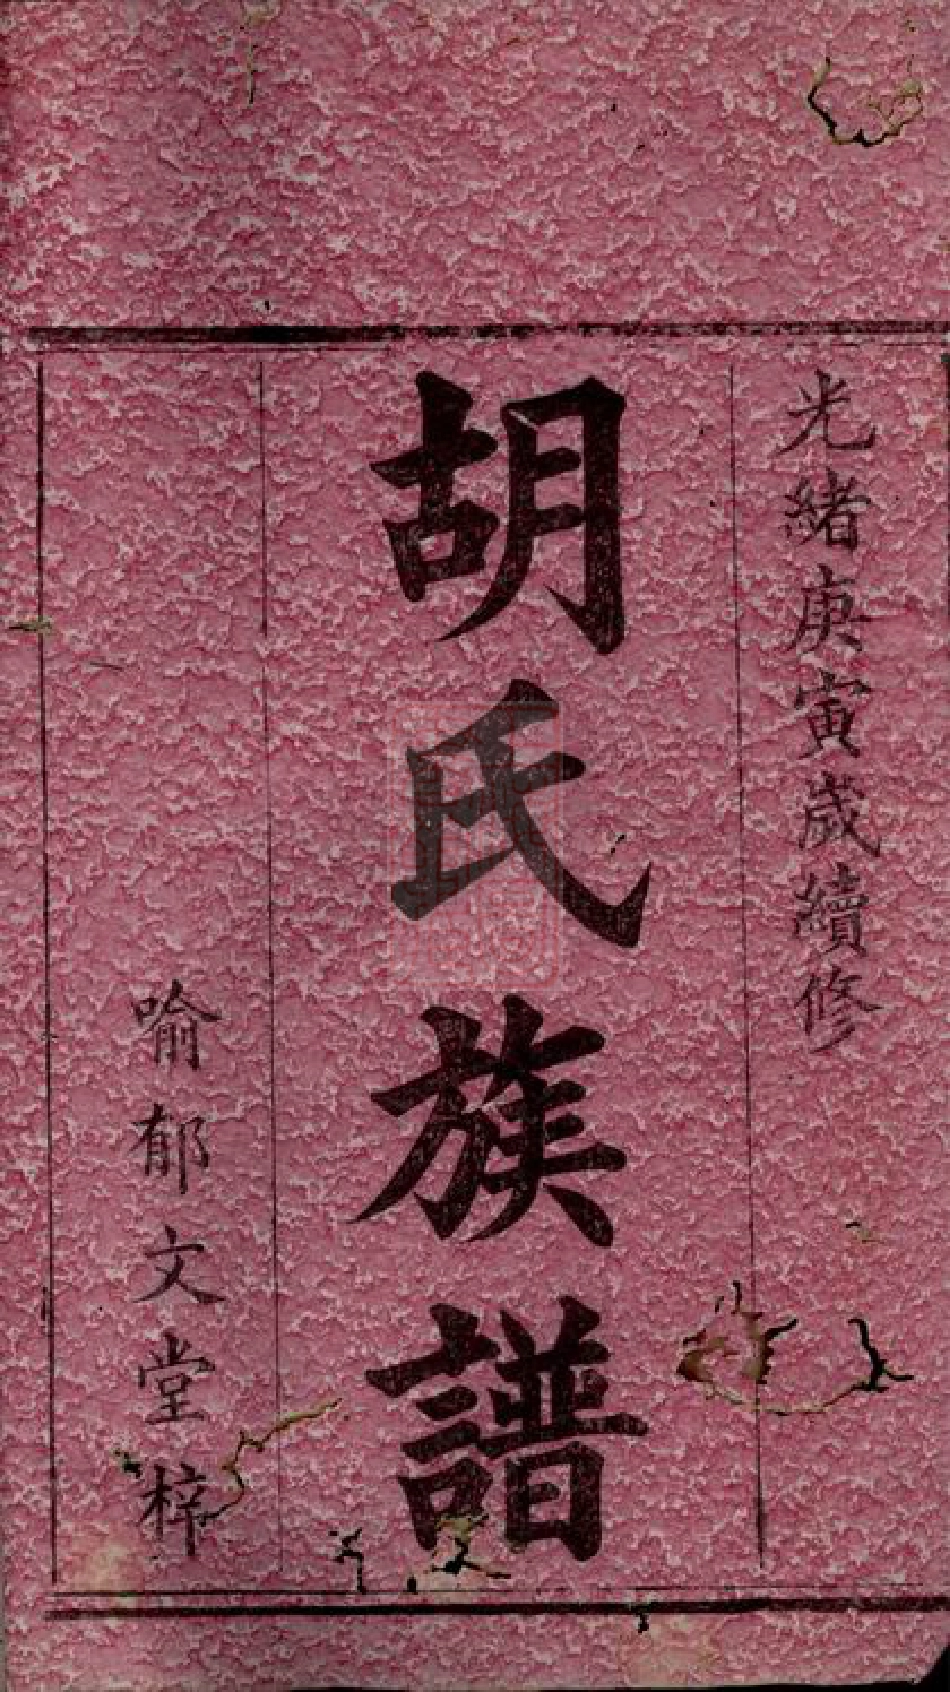 光緒庚寅歲續修
胡氏族譜
喻郁文堂梓